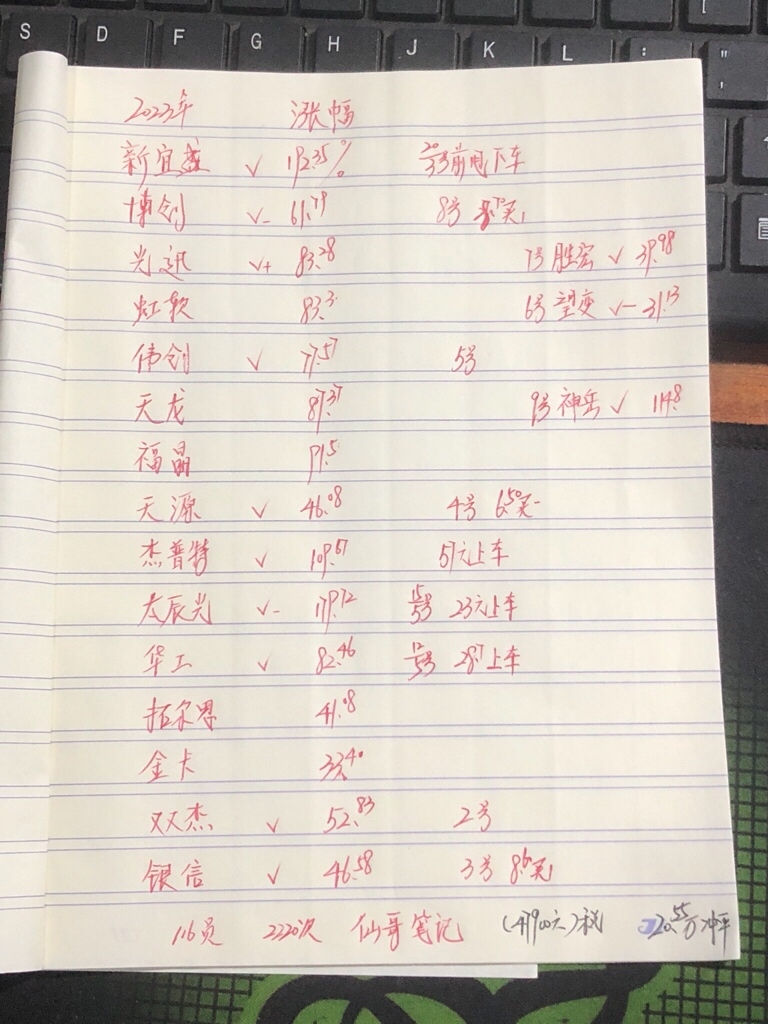 S D F G H J K L : "
2023年 涨幅
新宜盛 ✓ 192.35% 前 下车
博创 ✓- 61.79 8号
光迅 ✓+ 83.28 7号 胜宏 ✓ 37.98
虹软 83.3 6号 望变 ✓- 31.13
伟创 ✓ 77.57 5号
天龙 87.37 9号 神岳 ✓ 114.8
福晶 91.5
天源 ✓ 46.08 4号 6.50买
杰普特 ✓ 109.67 57元上车
太辰光 ✓- 179.12 23元上车
华工 ✓ 82.46 28.7上车
柏尔思 41.08
金卡 33.40
双杰 ✓ 52.83 2号
银信 ✓ 46.58 3号 8.6买
116员 2220次 仙哥笔记 (47900元)税 20.55万冲平